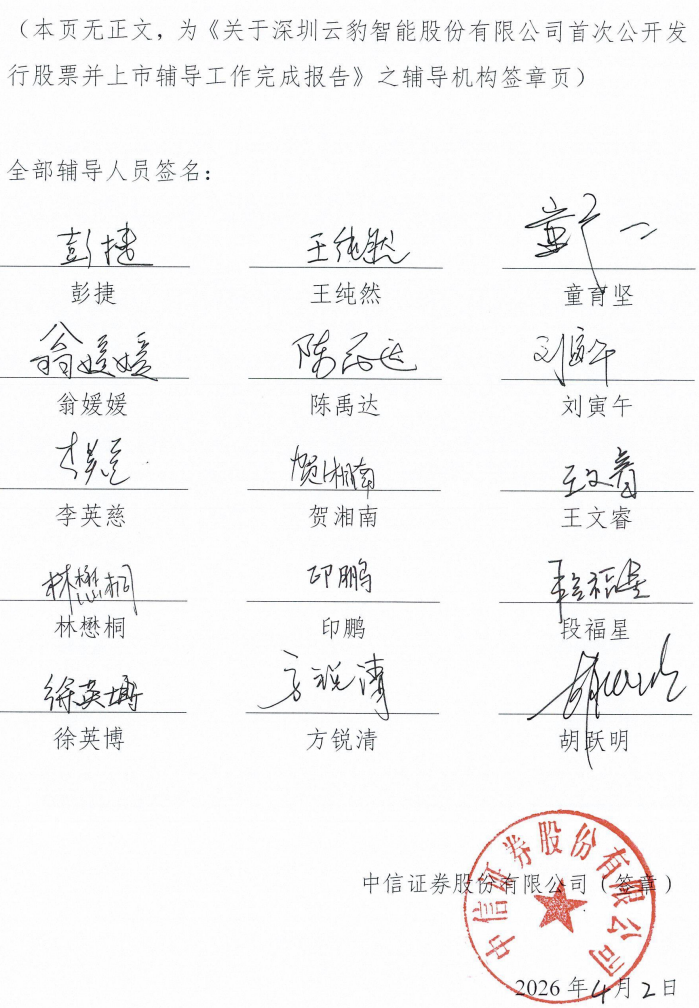 （本页无正文，为《关于深圳云豹智能股份有限公司首次公开发
行股票并上市辅导工作完成报告》之辅导机构签章页）
全部辅导人员签名：
彭捷 王纯然 童
彭捷 王纯然 童育坚
翁媛媛 陈禹达 刘寅午
翁媛媛 陈禹达 刘寅午
李英慈 贺湘南 王文睿
李英慈 贺湘南 王文睿
林懋桐 印鹏 段福星
林懋桐 印鹏 段福星
徐英博 方锐清 胡
徐英博 方锐清 胡跃明
中信证券股份有限公司（签章）
中信证券股份有限公司
2026年4月2日